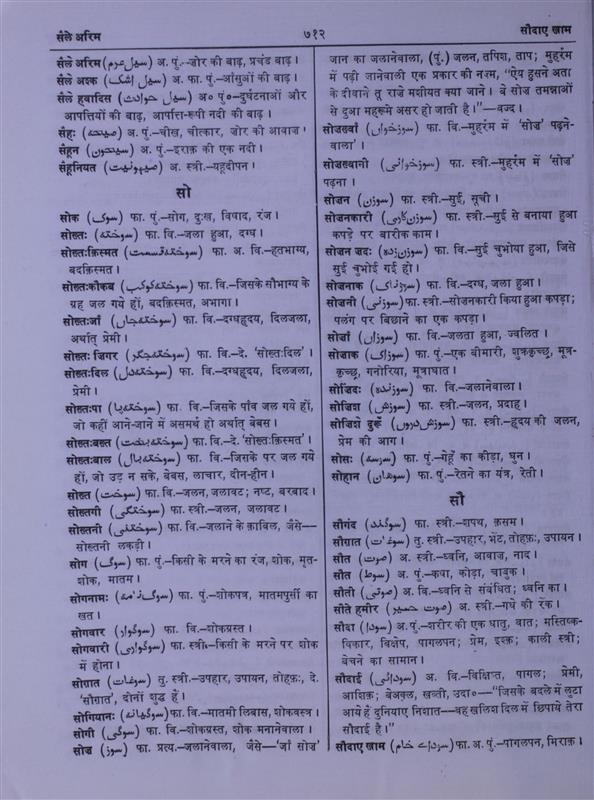 सैले अरिम
७१२
सौदाए ख़ाम
सैले अरिम (سیل عرم) अ. पुं.–ज़ोर की बाढ़, प्रचंड बाढ़।
सैले अश्क (سیل اشک) अ. फ़ा. पुं.–आँसुओं की बाढ़।
सैले हवादिस (سیل حوادث) अ० पुं०–दुर्घटनाओं और
आपत्तियों की बाढ़, आपत्ति-रूपी नदी की बाढ़।
सैहः (صیحه) अ. पुं.–चीख़, चीत्कार, ज़ोर की आवाज़।
सैहून (سیحون) अ. पुं.–इराक़ की एक नदी।
सैहूनियत (صیہونیت) अ. स्त्री.–यहूदीपन।
सो
सोक (سوک) फ़ा. पुं.–सोग, दुःख, विषाद, रंज।
सोख़्तः (سوخته) फ़ा. वि.–जला हुआ, दग्ध।
सोख़्तःक़िस्मत (سوخته قسمت) फ़ा. अ. वि.–हतभाग्य,
बदक़िस्मत।
सोख़्तःकौकब (سوخته کوکب) फ़ा. वि.–जिसके सौभाग्य के
ग्रह जल गये हों, बदक़िस्मत, अभागा।
सोख़्तःजाँ (سوخته جاں) फ़ा. वि.–दग्धहृदय, दिलजला,
अर्थात् प्रेमी।
सोख़्तः जिगर (سوخته جگر) फ़ा. वि.–दे. 'सोख़्तःदिल'।
सोख़्तःदिल (سوخته دل) फ़ा. वि.–दग्धहृदय, दिलजला,
प्रेमी।
सोख़्तःपा (سوخته پا) फ़ा. वि.–जिसके पाँव जल गये हों,
जो कहीं आने-जाने में असमर्थ हो अर्थात् बेबस।
सोख़्तःबख़्त (سوخته بخت) फ़ा. वि.–दे. 'सोख़्तःक़िस्मत'।
सोख़्तःबाल (سوخته بال) फ़ा. वि.–जिसके पर जल गये
हों, जो उड़ न सके, बेबस, लाचार, दीन-हीन।
सोख़्त (سوخت) फ़ा. वि.–जलन, जलावट; नष्ट, बरबाद।
सोख़्तगी (سوختگی) फ़ा. स्त्री.–जलन, जलावट।
सोख़्तनी (سوختنی) फ़ा. वि.–जलाने के क़ाबिल, जैसे—
सोख़्तनी लकड़ी।
सोग (سوگ) फ़ा. पुं.–किसी के मरने का रंज, शोक, मृत-
शोक, मातम।
सोगनामः (سوگ نامه) फ़ा. पुं.–शोकपत्र, मातमपुर्सी का
ख़त।
सोगवार (سوگوار) फ़ा. वि.–शोकग्रस्त।
सोगवारी (سوگواری) फ़ा. स्त्री.–किसी के मरने पर शोक
में होना।
सोग़ात (سوغات) तु. स्त्री.–उपहार, उपायन, तोहफ़ः, दे.
'सौग़ात', दोनों शुद्ध हैं।
सोगियानः (سوگیانه) फ़ा. वि.–मातमी लिबास, शोकवस्त्र।
सोगी (سوگی) फ़ा. वि.–शोकग्रस्त, शोक मनानेवाला।
सोज़ (سوز) फ़ा. प्रत्य.–जलानेवाला, जैसे—'जाँ सोज़'
जान का जलानेवाला, (पुं.) जलन, तपिश, ताप; मुहर्रम
में पढ़ी जानेवाली एक प्रकार की नज़्म, "ऐय हुसने अता
के दीवाने तू राज़े मशीयत क्या जाने। बे सोज़ तमन्नाओं
से दुआ महरूमे असर हो जाती है।"—वज्द।
सोज़ख़्वाँ (سوزخواں) फ़ा. वि.–मुहर्रम में 'सोज़' पढ़ने-
वाला'।
सोज़ख़्वानी (سوزخوانی) फ़ा. स्त्री.–मुहर्रम में 'सोज़'
पढ़ना।
सोज़न (سوزن) फ़ा. स्त्री.–सुई, सूची।
सोज़नकारी (سوزن کاری) फ़ा. स्त्री.–सुई से बनाया हुआ
कपड़े पर बारीक काम।
सोज़न ज़दः (سوزن زده) फ़ा. वि.–सुई चुभोया हुआ, जिसे
सुई चुभोई गई हो।
सोज़नाक (سوزناک) फ़ा. वि.–दग्ध, जला हुआ।
सोज़नी (سوزنی) फ़ा. स्त्री.–सोज़नकारी किया हुआ कपड़ा;
पलंग पर बिछाने का एक कपड़ा।
सोज़ाँ (سوزاں) फ़ा. वि.–जलता हुआ, ज्वलित।
सोज़ाक (سوزاک) फ़ा. पुं.–एक बीमारी, शुक्रकृच्छ्र, मूत्र-
कृच्छ्र, गनोरिया, मूत्राघात।
सोज़िंदः (سوزنده) फ़ा. वि.–जलानेवाला।
सोज़िश (سوزش) फ़ा. स्त्री.–जलन, प्रदाह।
सोज़िशे दुरूँ (سوزش دروں) फ़ा. स्त्री.–हृदय की जलन,
प्रेम की आग।
सोसः (سوسه) फ़ा. पुं.–गेहूँ का कीड़ा, घुन।
सोहान (سوهان) फ़ा. पुं.–रेतने का यंत्र, रेती।
सौ
सौगंद (سوگند) फ़ा. स्त्री.–शपथ, क़सम।
सौग़ात (سوغات) तु. स्त्री.–उपहार, भेंट, तोहफ़ः, उपायन।
सौत (صوت) अ. स्त्री.–ध्वनि, आवाज़, नाद।
सौत (سوط) अ. पुं.–कषा, कोड़ा, चाबुक।
सौती (صوتی) अ. वि.–ध्वनि से संबंधित; ध्वनि का।
सौते हमीर (صوت حمیر) अ. स्त्री.–गधे की रेंक।
सौदा (سودا) अ. पुं.–शरीर की एक धातु, वात; मस्तिष्क-
विकार, विक्षेप, पागलपन; प्रेम, इश्क़; काली स्त्री;
बेचने का सामान।
सौदाई (سودائی) अ. वि.–विक्षिप्त, पागल; प्रेमी,
आशिक़; बेअक़्ल, ख़ब्ती, उदा०—"जिसके बदले में लुटा
आये हैं दुनियाए निशात—वह ख़लिश दिल में छिपाये तेरा
सौदाई है।"
सौदाए ख़ाम (سودائے خام) फ़ा. अ. पुं.–पागलपन, मिराक़।